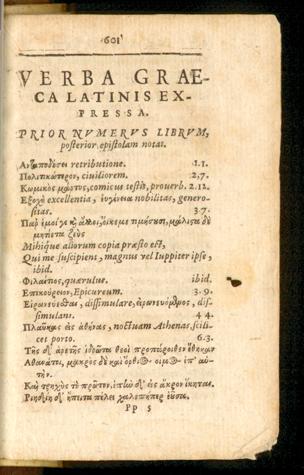 601
VERBA GRAE-
CA LATINIS EX-
PRESSA.
PRIOR NVMERVS LIBRVM,
posterior epistolam notat.
Ἀνταποδόσει retributione. 1.1.
Πολιτικώτερον, civiliorem. 2,7.
Κωμικὸς μάρτυς, comicus testis, prouerb. 2.12.
Ἐξοχὴ excellentia, εὐγένεια nobilitas, genero-
sitas. 3.7.
Παρ' ἐμοί γε καὶ ἄλλοι, οἵ κε με τιμήσουσι, μάλιστα δὲ
μητίετα ζεύς
Mihique aliorum copia præsto est,
Qui me suscipient, magnus vel Iuppiter ipse,
ibid.
Φιλαίτιος, quærulus. ibid.
Ἐπικούρειον, Epicureum. 3.9.
Εἰρωνεύεσθαι, dissimulare, εἰρωνευόμενος, dis-
simulans. 4 4.
Γλαῦκας εἰς ἀθήνας, noctuam Athenas scili-
cet porto. 6.3.
Τῆς δ' ἀρετῆς ἱδρῶτα θεοὶ προπάροιθεν ἔθηκαν
Ἀθάνατοι, μακρὸς δὲ καὶ ὄρθιος οἶμος ἐπ' αὐ-
τήν.
Καὶ τρηχὺς τὸ πρῶτον, ἐπὴν δ' εἰς ἄκρον ἵκηται.
Ῥηιδίη δ' ἤπειτα πέλει χαλεπήπερ ἐοῦσα.
Pp 5